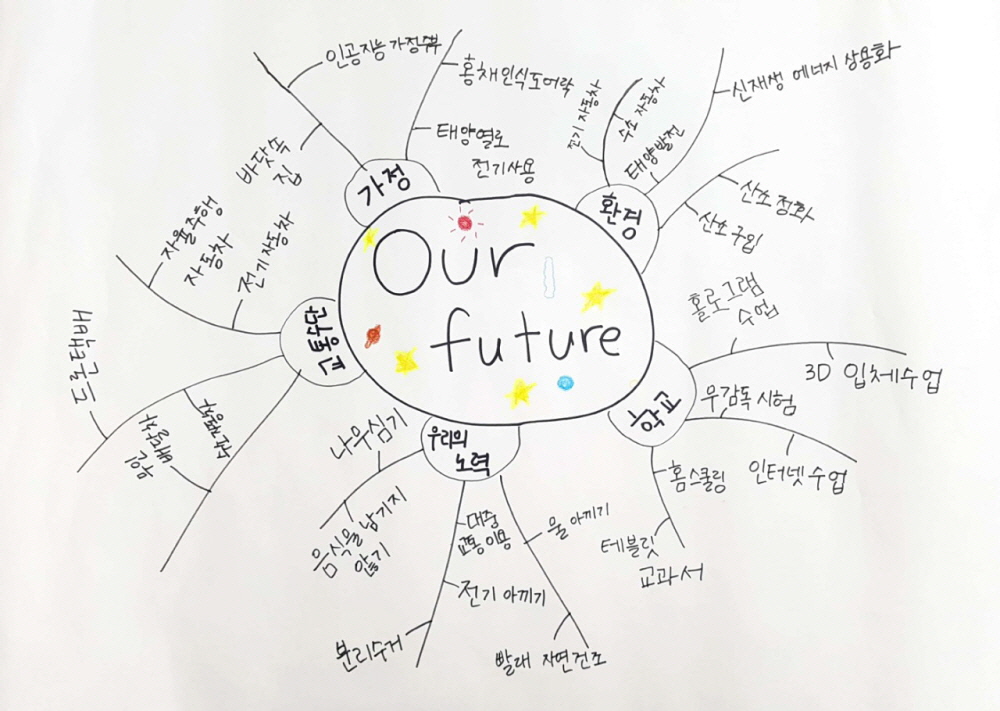 Our
future
가정
인공지능 가정부
바닷속
집
홍채인식도어락
태양열로
전기사용
환경
전기 자동차
수소 자동차
태양발전
신재생 에너지 상용화
산소 정화
산소구입
학교
홀로그램
수업
3D 입체수업
무감독 시험
인터넷수업
홈스쿨링
테블릿
교과서
우리의
노력
나무심기
음식을 남기지
않기
대중
교통이용
전기 아끼기
분리수거
물 아끼기
빨래 자연건조
교통수단
자율주행
자동차
전기자동차
드론택배